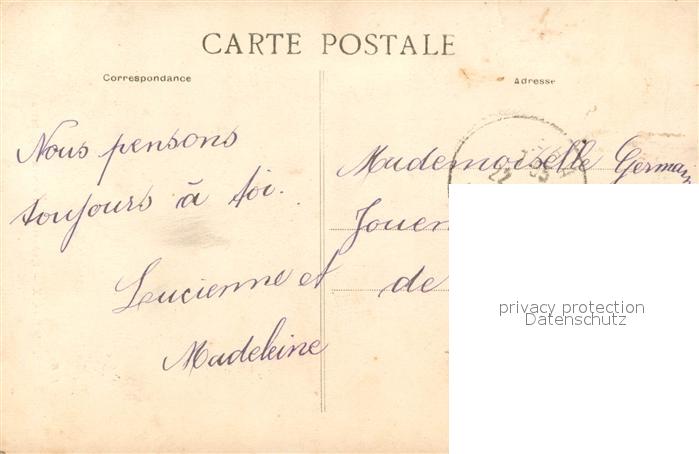 CARTE POSTALE
Correspondance
Adresse
Nous pensons
toujours à toi.
Lucienne et
Madeleine
Mademoiselle Germain
Jouen
de
privacy protection
Datenschutz